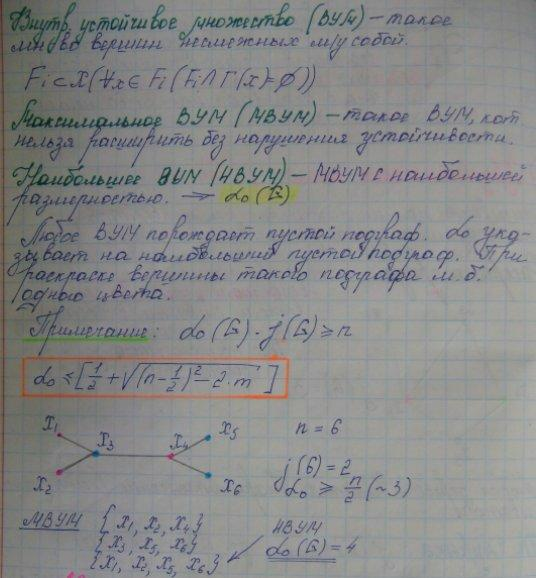 Внутр. устойчивое множество (ВУМ) – такое
мн-во вершин несмежных м/у собой.
Fi ⊂ X (∀x ∈ Fi (Fi ∩ Г(x) = ∅))
Максимальное ВУМ (МВУМ) – такое ВУМ, кот.
нельзя расширить без нарушения устойчивости.
Наибольшее ВУМ (НВУМ) – МВУМ с наибольшей
размерностью. → α₀(G)
Любое ВУМ порождает пустой подграф. α₀ ука-
зывает на наибольший пустой подграф. При
раскраске вершины такого подграфа м.б.
одного цвета.
Примечание: α₀(G) · j(G) ≥ n
α₀ ≤ [1/2 + √((n - 1/2)² - 2·m)]
x₁ x₃ x₄ x₅ n = 6
x₂ x₆ j(6) = 2
α₀ ≥ n/2 (~3)
МВУМ {x₁, x₂, x₄} НВУМ
{x₃, x₅, x₆}
{x₁, x₂, x₅, x₆} α₀(G) = 4